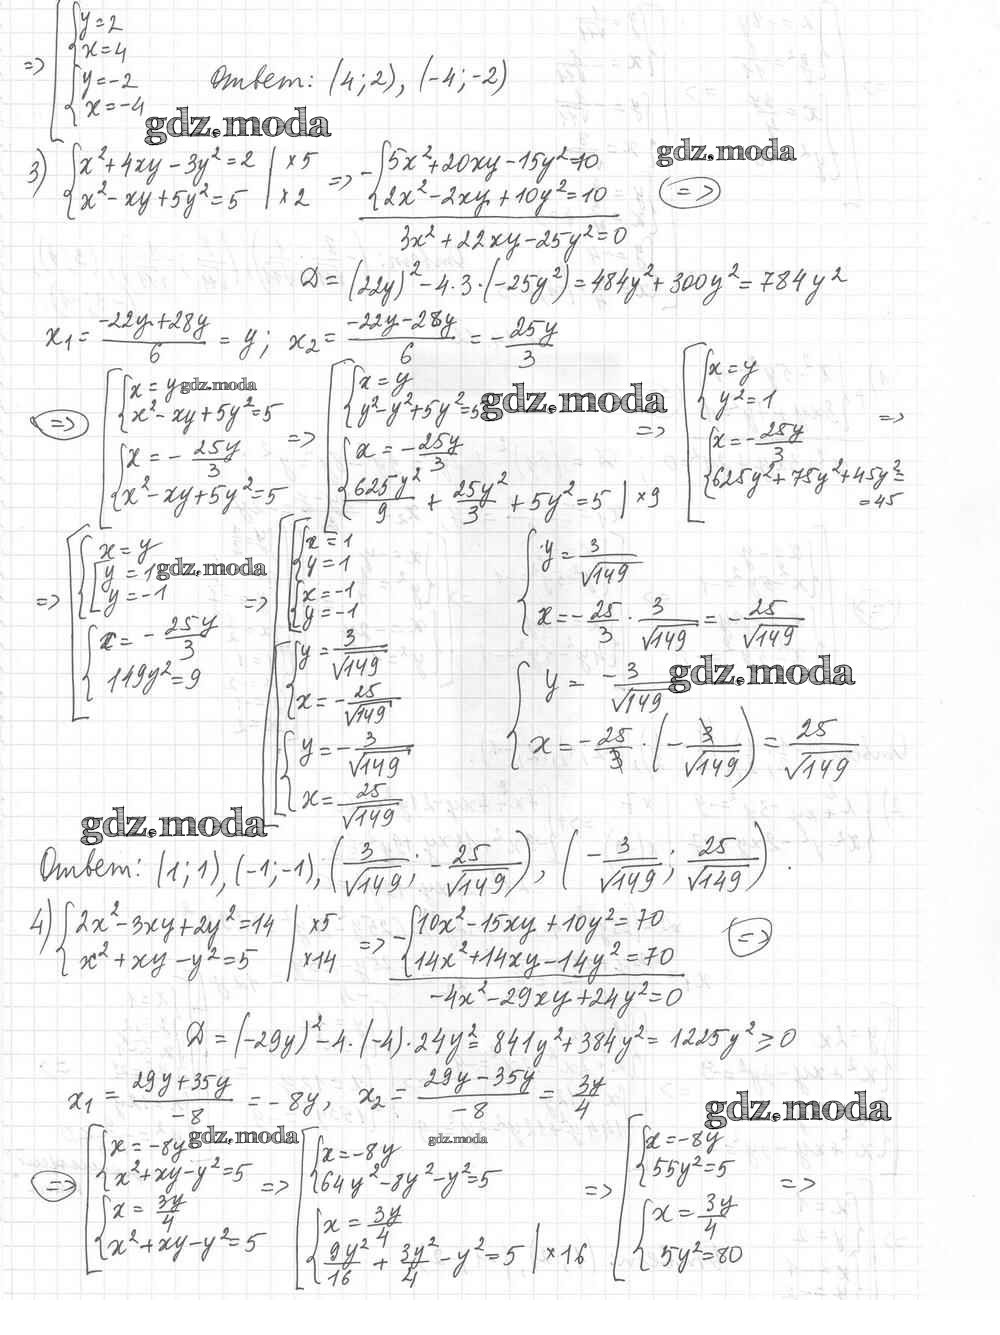 => [ { y=2
x=4
{ y=-2
x=-4
Ответ: (4;2), (-4;-2)
gdz.moda
3) { x²+4xy-3y²=2 | ×5
x²-xy+5y²=5 | ×2
=> - { 5x²+20xy-15y²=10
2x²-2xy+10y²=10
3x²+22xy-25y²=0
gdz.moda
=>
D=(22y)²-4·3·(-25y²)=484y²+300y²=784y²
x₁= (-22y+28y)/6 = y; x₂= (-22y-28y)/6 = - 25y/3
=> [ { x=y gdz.moda
x²-xy+5y²=5
{ x=- 25y/3
x²-xy+5y²=5
=> [ { x=y
y²-y²+5y²=5 gdz.moda
{ x=- 25y/3
625y²/9 + 25y²/3 + 5y²=5 | ×9
=> [ { x=y
y²=1
{ x=- 25y/3
625y²+75y²+45y²=
=45
=>
=> [ { x=y
[ y=1 gdz.moda
y=-1
{ x=- 25y/3
149y²=9
=> [ [ { x=1
y=1
{ x=-1
y=-1
[ { y= 3/√149
x=- 25/√149
{ y=- 3/√149
x= 25/√149
{ y= 3/√149
x=- 25/3 · 3/√149 = - 25/√149
{ y= - 3/√149 gdz.moda
x=- 25/3 · (- 3/√149) = 25/√149
gdz.moda
Ответ: (1;1), (-1;-1), (3/√149; - 25/√149), (- 3/√149; 25/√149).
4) { 2x²-3xy+2y²=14 | ×5
x²+xy-y²=5 | ×14
=> - { 10x²-15xy+10y²=70
14x²+14xy-14y²=70
-4x²-29xy+24y²=0
=>
D=(-29y)²-4·(-4)·24y²= 841y²+384y²= 1225y²≥0
x₁ = (29y+35y)/-8 = -8y, x₂= (29y-35y)/-8 = 3y/4
gdz.moda
=> [ { x=-8y gdz.moda
x²+xy-y²=5
{ x= 3y/4
x²+xy-y²=5
=> [ { x=-8y gdz.moda
64y²-8y²-y²=5
{ x= 3y/4
9y²/16 + 3y²/4 - y²=5 | ×16
=> [ { x=-8y
55y²=5
{ x= 3y/4
5y²=80
=>